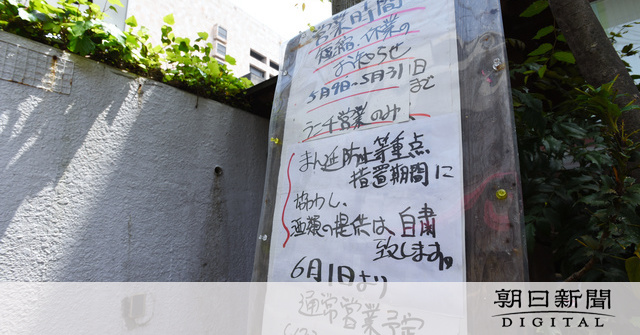 営業時間
短縮、休業の
お知らせ
5月9日~5月31日まで
ランチ営業のみ、
まん延防止等重点
措置期間に
協力し、
酒類の提供は、自粛
致します。
6月1日より
通常営業予定
朝日新聞
DIGITAL